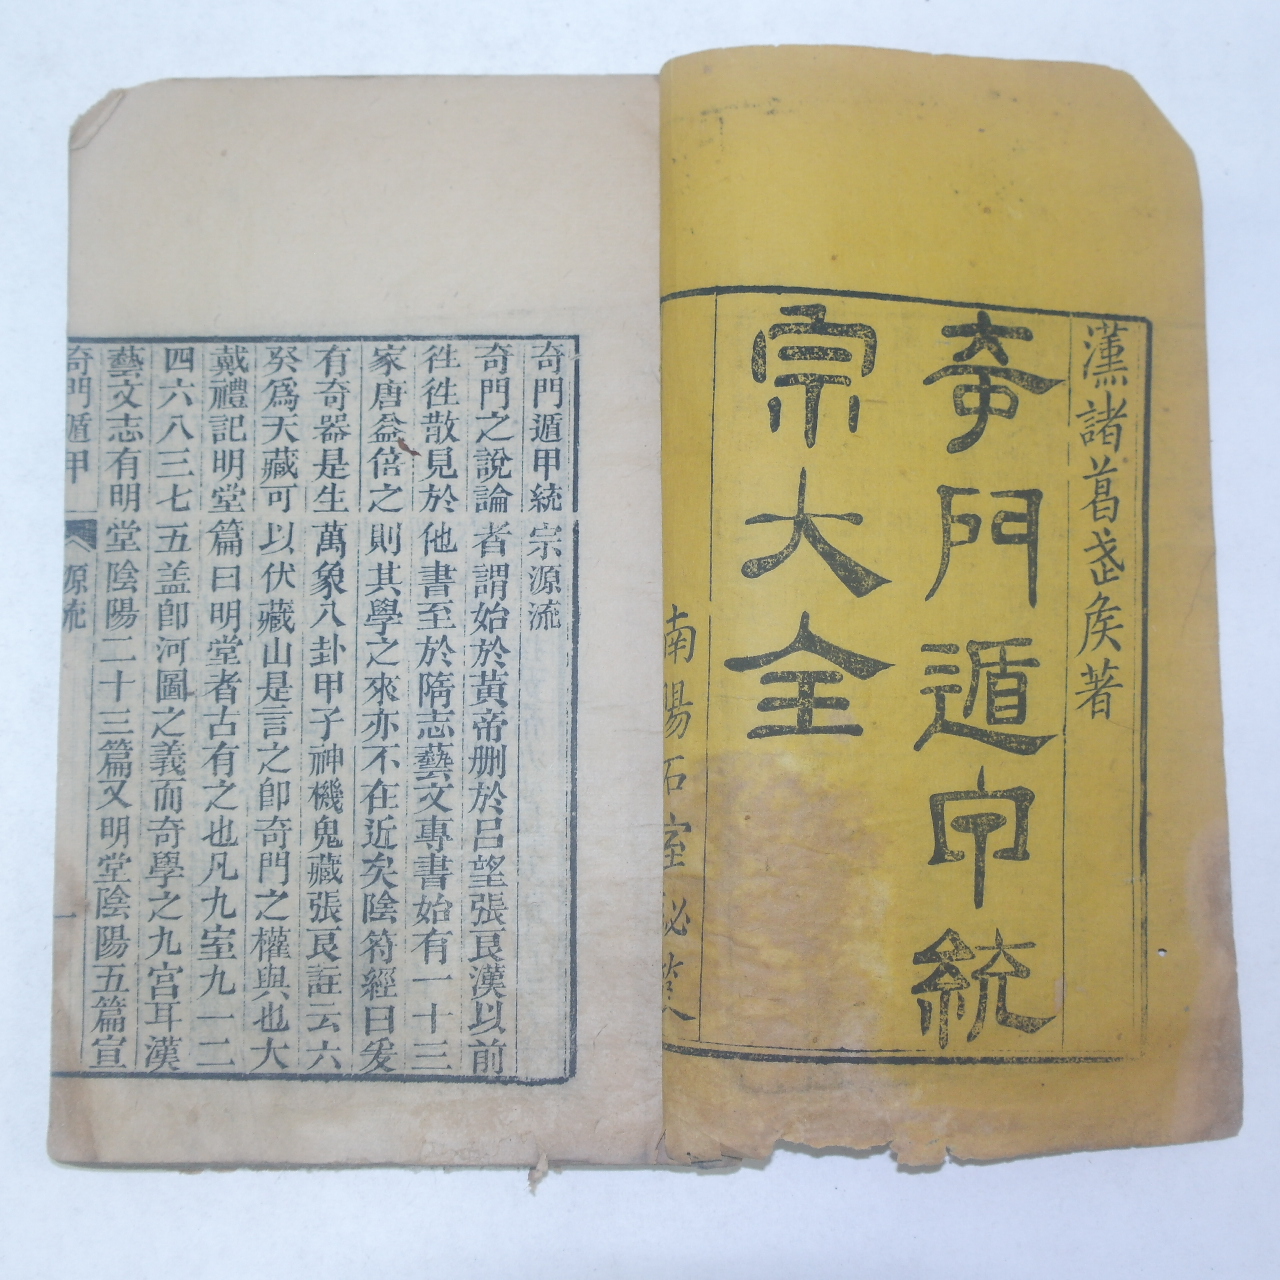 漢諸葛武矦著
奇門遁甲統
宗大全
南陽石室秘笈
奇門遁甲統宗源流
奇門之說論者謂始於黃帝删於呂望張良漢以前
徃徃散見於他書至於隋志藝文專書始有一十三
家唐益倍之則其學之來亦不在近矣陰符經曰爰
有奇器是生萬象八卦甲子神機鬼藏張良註云六
癸爲天藏可以伏藏山是言之卽奇門之權輿也大
戴禮記明堂篇曰明堂者古有之也凡九室九一二
四六八三七五盖卽河圖之義而奇學之九宮耳漢
藝文志有明堂陰陽二十三篇又明堂陰陽五篇宣
奇門遁甲 源流 一